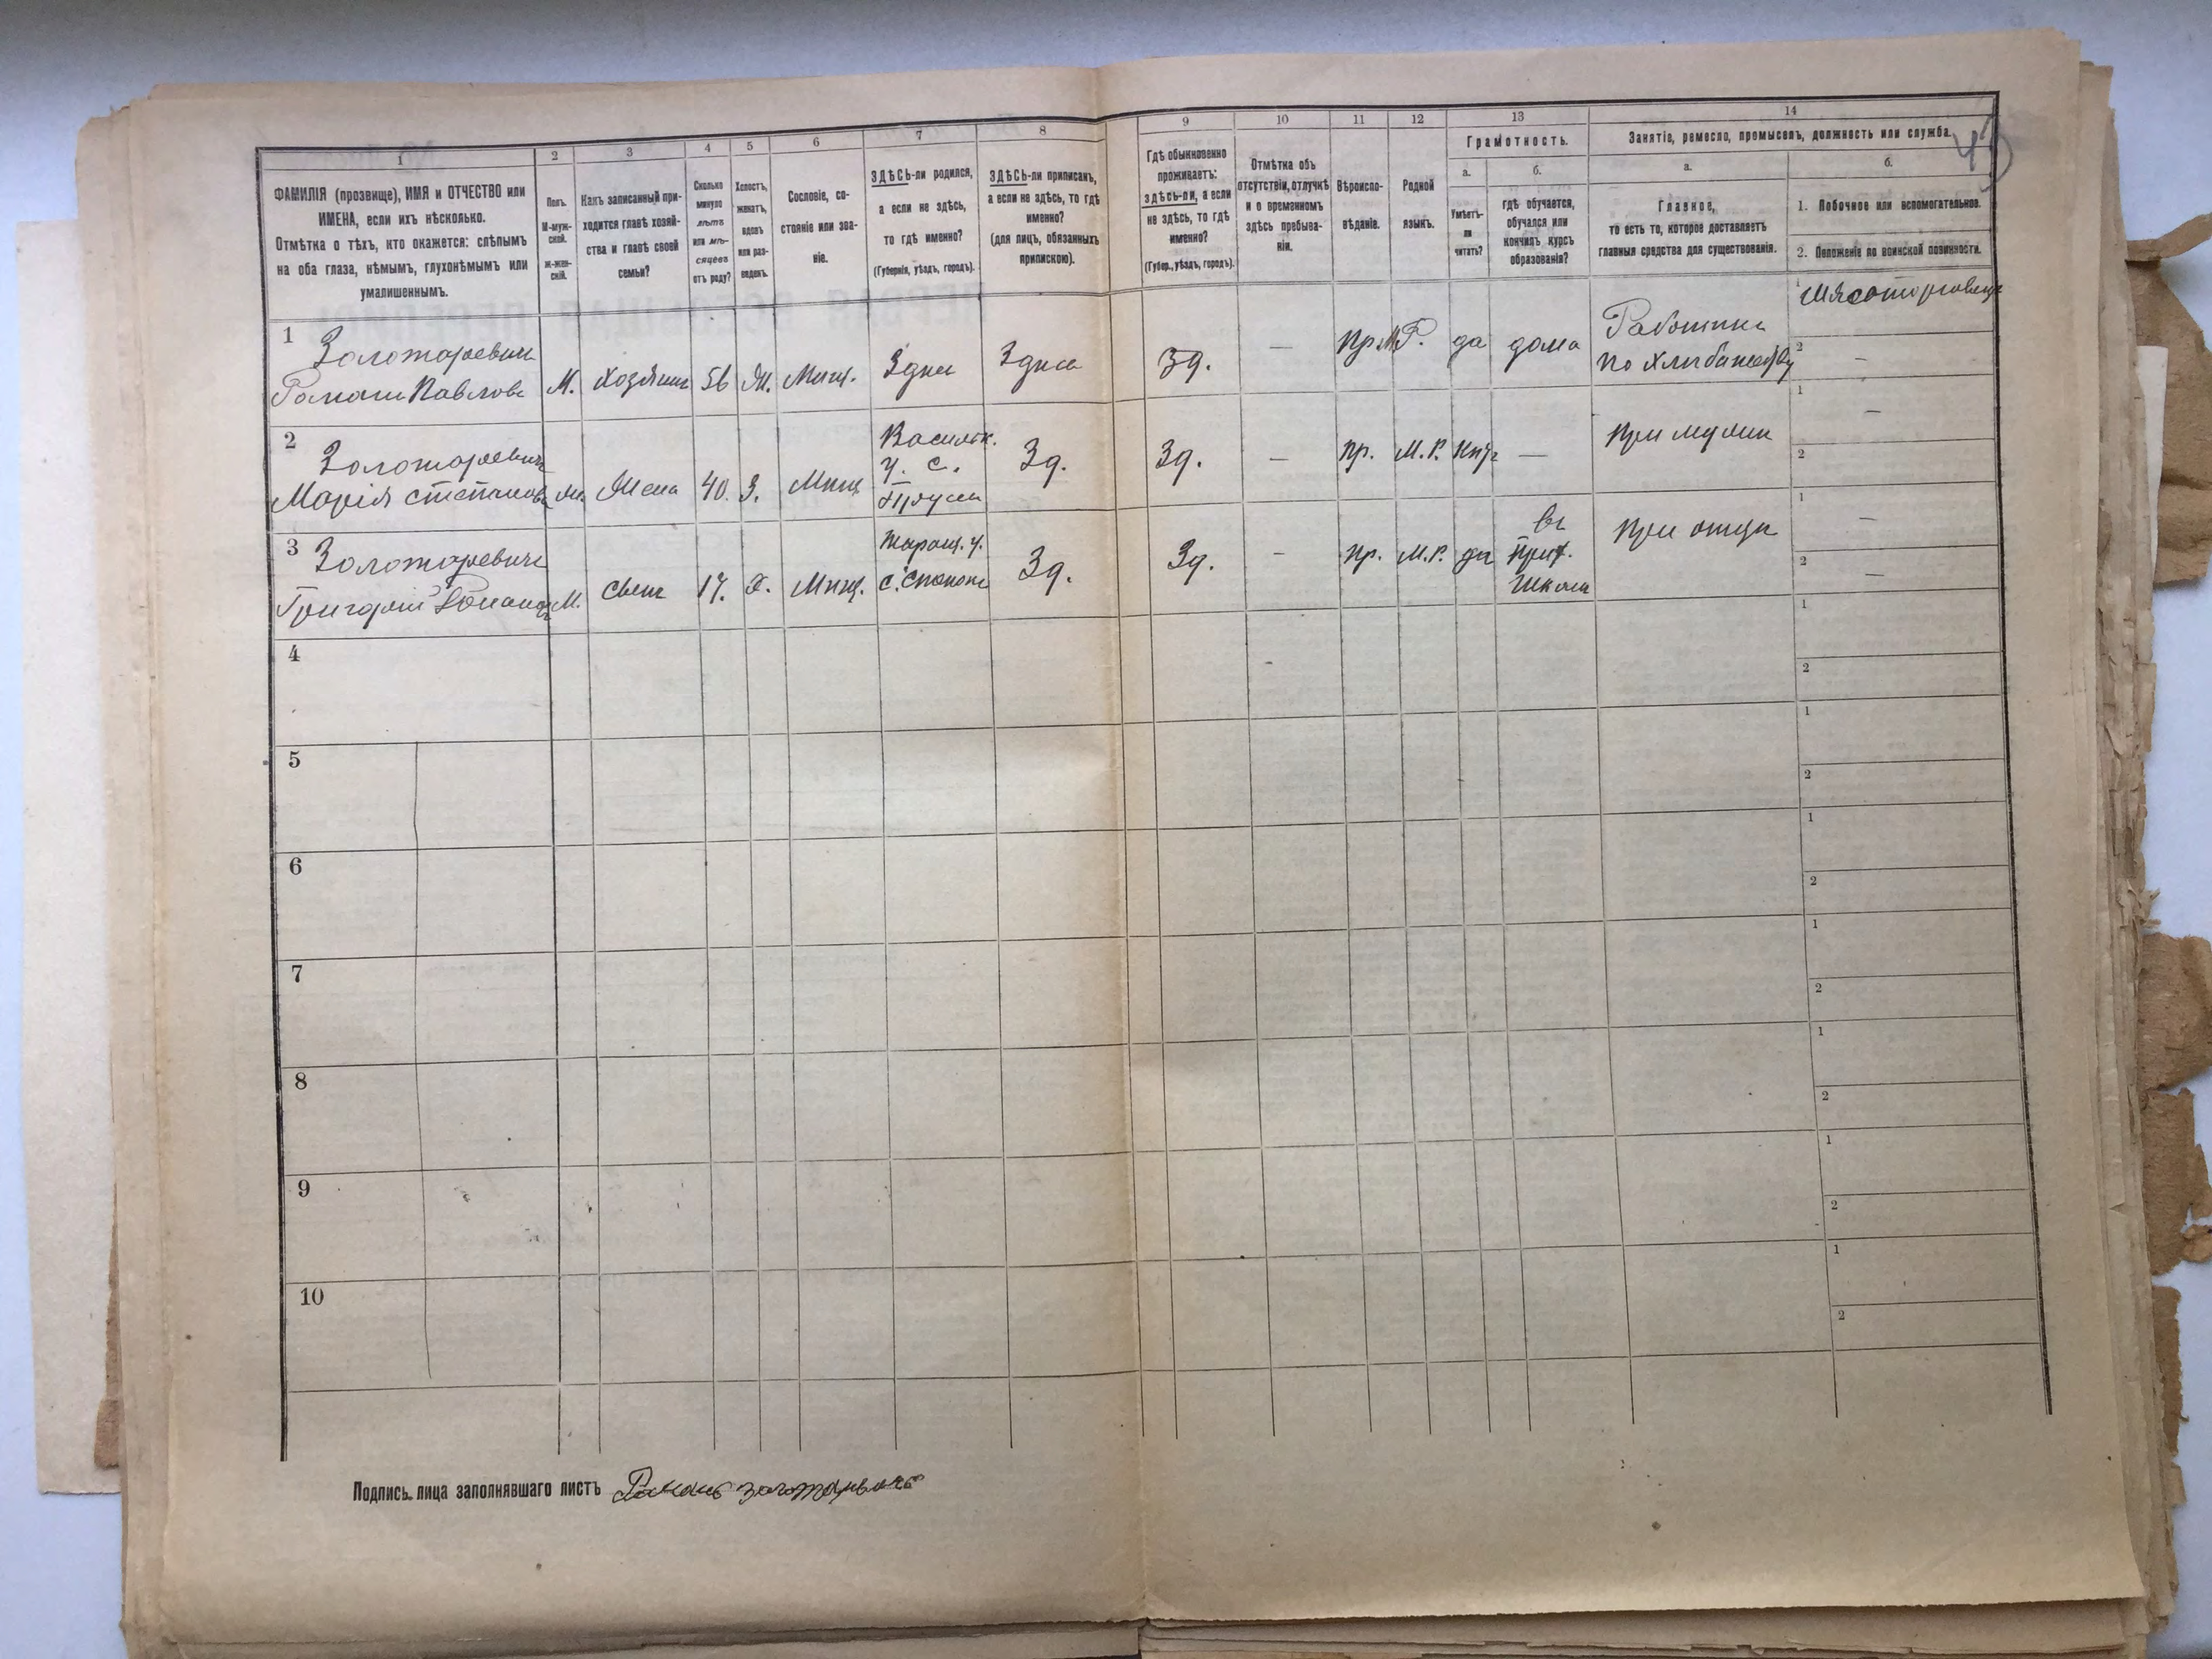 1
ФАМИЛІЯ (прозвище), ИМЯ и ОТЧЕСТВО или
ИМЕНА, если ихъ нѣсколько.
Отмѣтка о тѣхъ, кто окажется: слѣпымъ
на оба глаза, нѣмымъ, глухонѣмымъ или
умалишеннымъ.
2
Полъ.
М-муж-
ской.
ж-жен-
скій.
3
Какъ записанный при-
ходится главѣ хозяй-
ства и главѣ своей
семьи?
4
Сколько
минуло
лѣтъ
или мѣ-
сяцевъ
отъ роду?
5
Холостъ,
женатъ,
вдовъ
или раз-
веденъ.
6
Сословіе, со-
стояніе или зва-
ніе.
7
ЗДѢСЬ-ли родился,
а если не здѣсь,
то гдѣ именно?
(Губернія, уѣздъ, городъ).
8
ЗДѢСЬ-ли приписанъ,
а если не здѣсь, то гдѣ
именно?
(для лицъ, обязанныхъ
припискою).
9
Гдѣ обыкновенно
проживаетъ:
здѣсь-ли, а если
не здѣсь, то гдѣ
именно?
(Губер., уѣздъ, городъ).
10
Отмѣтка объ
отсутствіи, отлучкѣ
и о временномъ
здѣсь пребыва-
ніи.
11
Вѣроиспо-
вѣданіе.
12
Родной
языкъ.
13
Грамотность.
а.
Умѣетъ-
ли
читать?
б.
гдѣ обучается,
обучался или
кончилъ курсъ
образованія?
14
Занятіе, ремесло, промыселъ, должность или служба.
а.
Главное,
то есть то, которое доставляетъ
главныя средства для существованія.
б.
1. Побочное или вспомогательное.
2. Положеніе по воинской повинности.
1
Золотаревичъ
Романъ Павловъ
М.
Хозяинъ
56
Ж.
Мѣщ.
Здѣсь
Здѣсь
Зд.
—
Пр.
М.Р.
да
дома
по хлѣбопаш
1
2
—
2
Золотаревичъ
Марія Степанова
Ж.
Жена
40.
З.
Мѣщ.
Васильк.
у. с.
Зд.
Зд.
—
пр.
М.Р.
нѣтъ
—
При мужѣ
1
—
2
3
Золотаревичъ
Григорій Романовъ
М.
Сынъ
17.
Х.
Мѣщ.
Таращ. у.
Зд.
Зд.
—
пр.
М.Р.
да
въ
прих.
школѣ
При отцѣ
1
—
2
—
4
1
2
5
1
2
6
1
2
7
1
2
8
1
2
9
1
2
10
1
2
Подпись лица заполнявшаго листъ Романъ Золотаревичъ